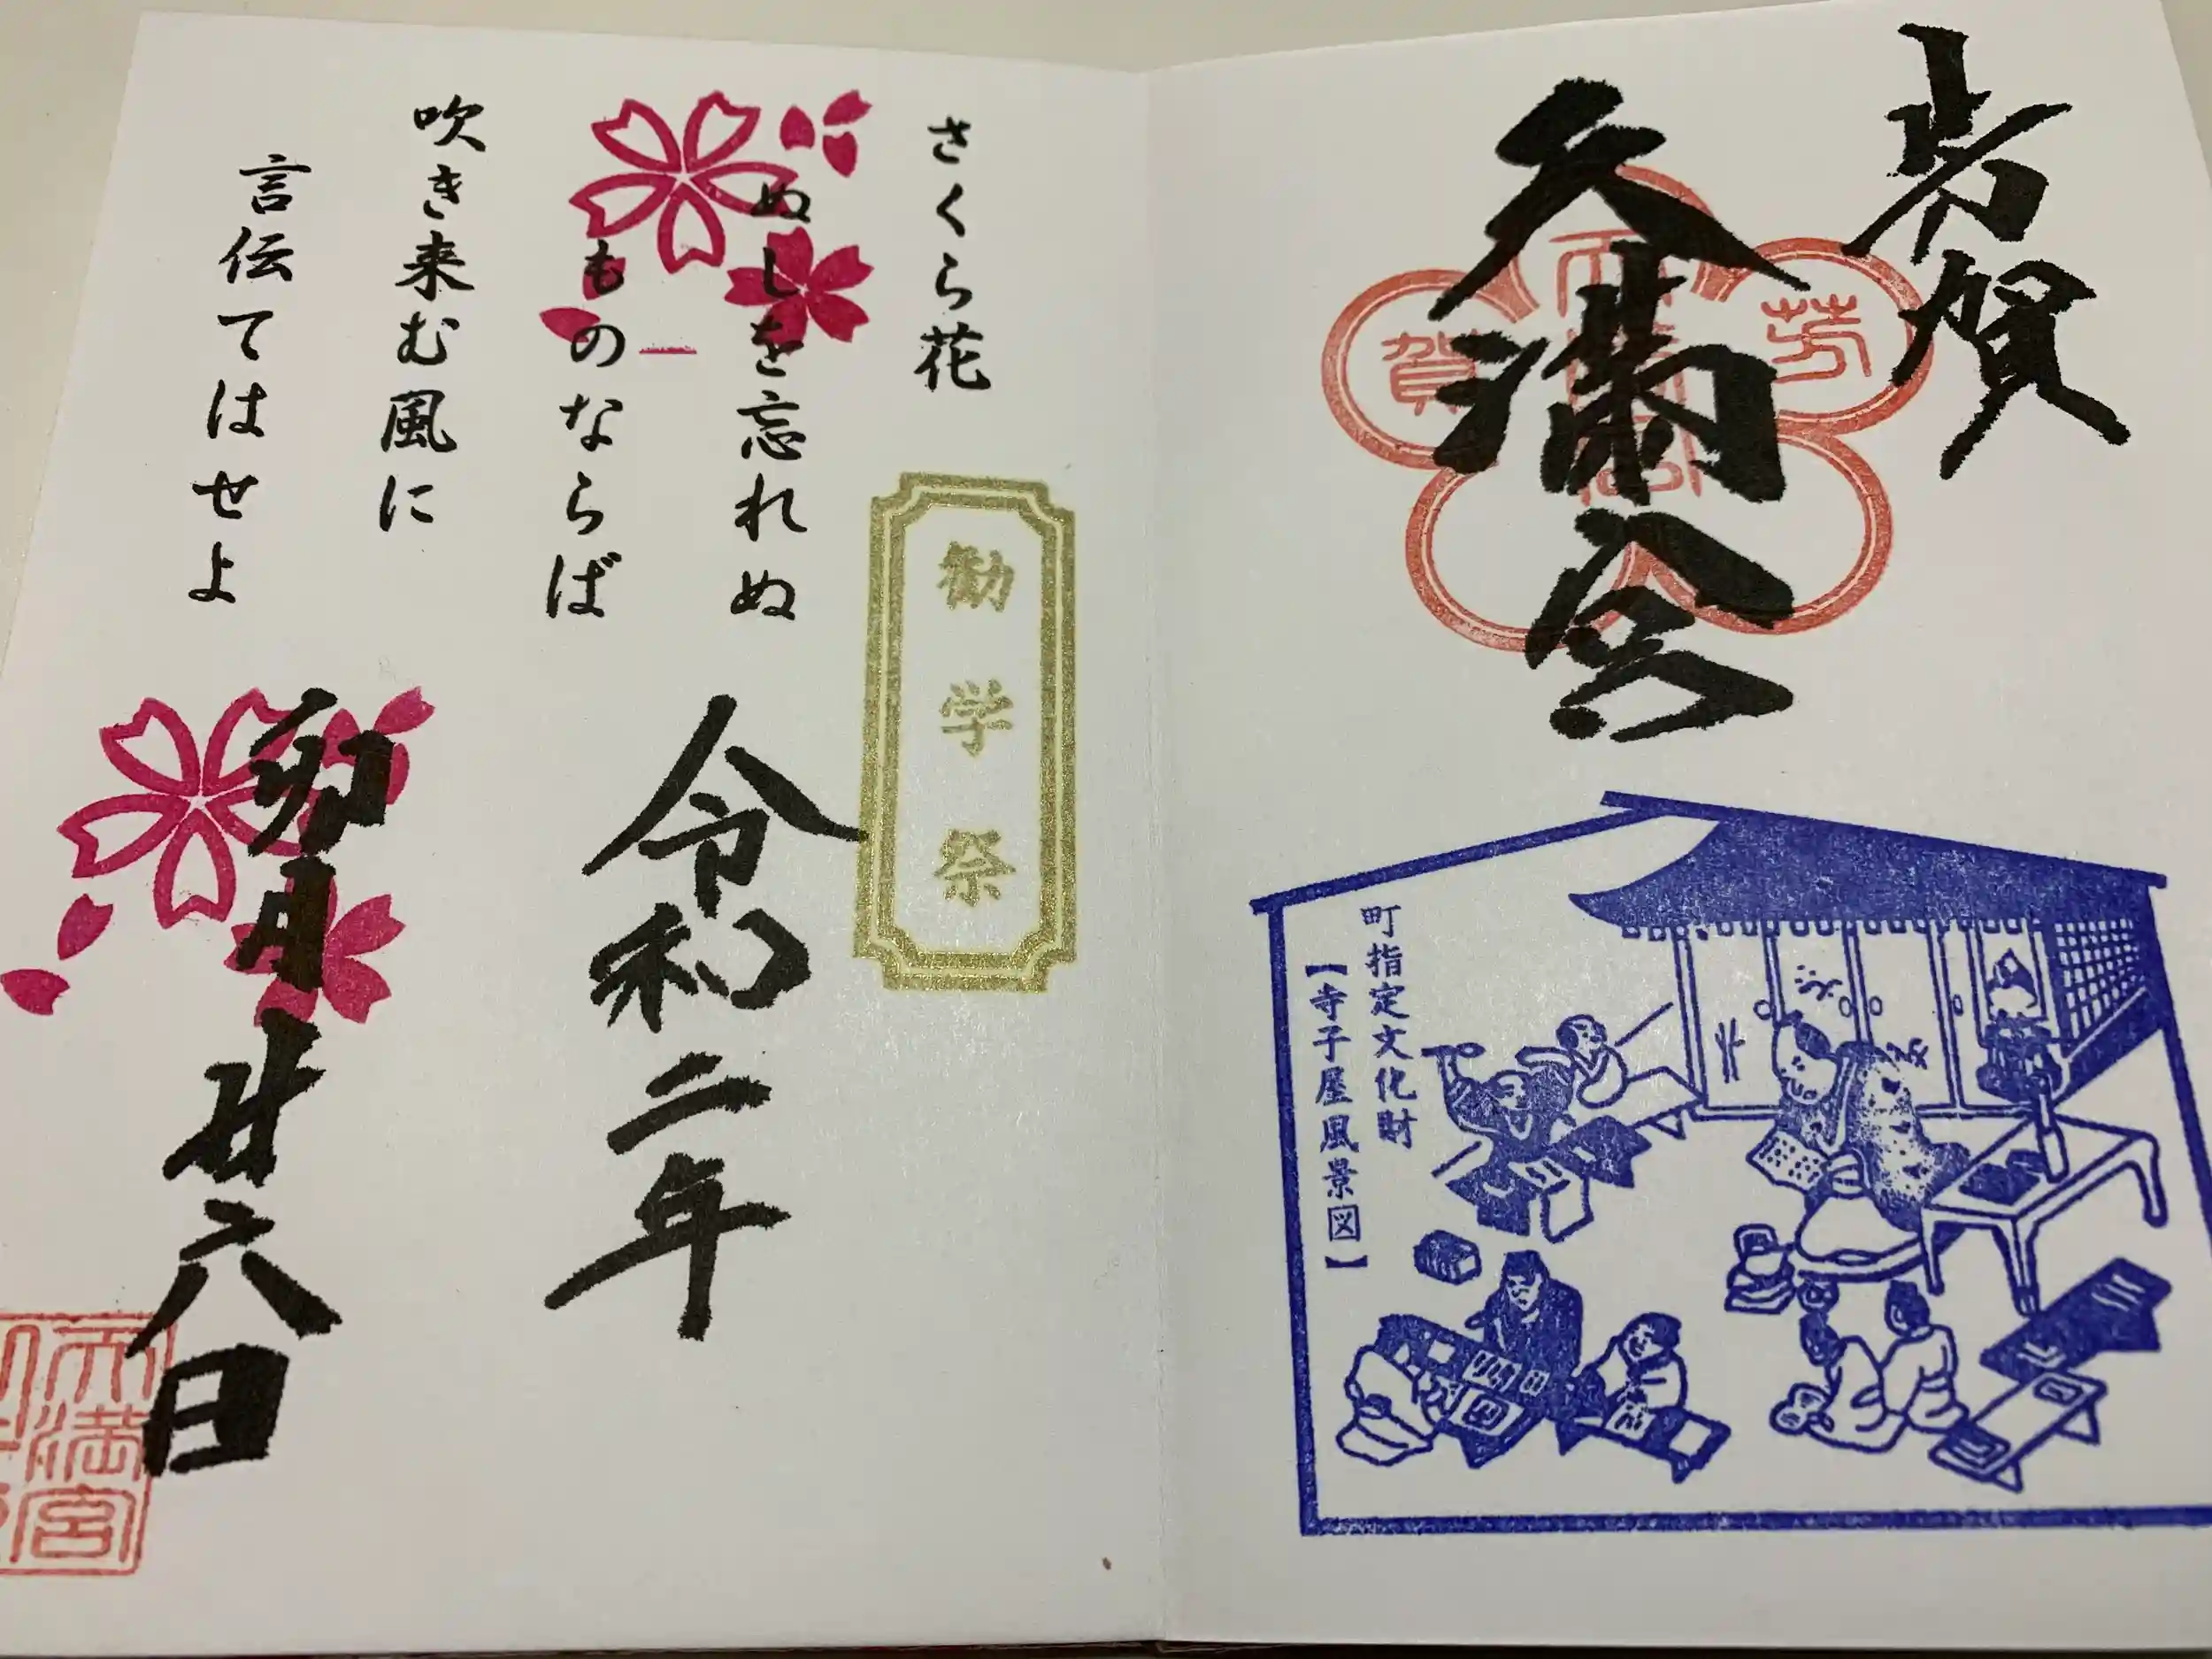 芳賀
天満宮
芳
賀
町指定文化財
【寺子屋風景図】
さくら花
ぬしを忘れぬ
ものならば
吹き来む風に
言伝てはせよ
勧学祭
令和二年
卯月廿六日
天満宮